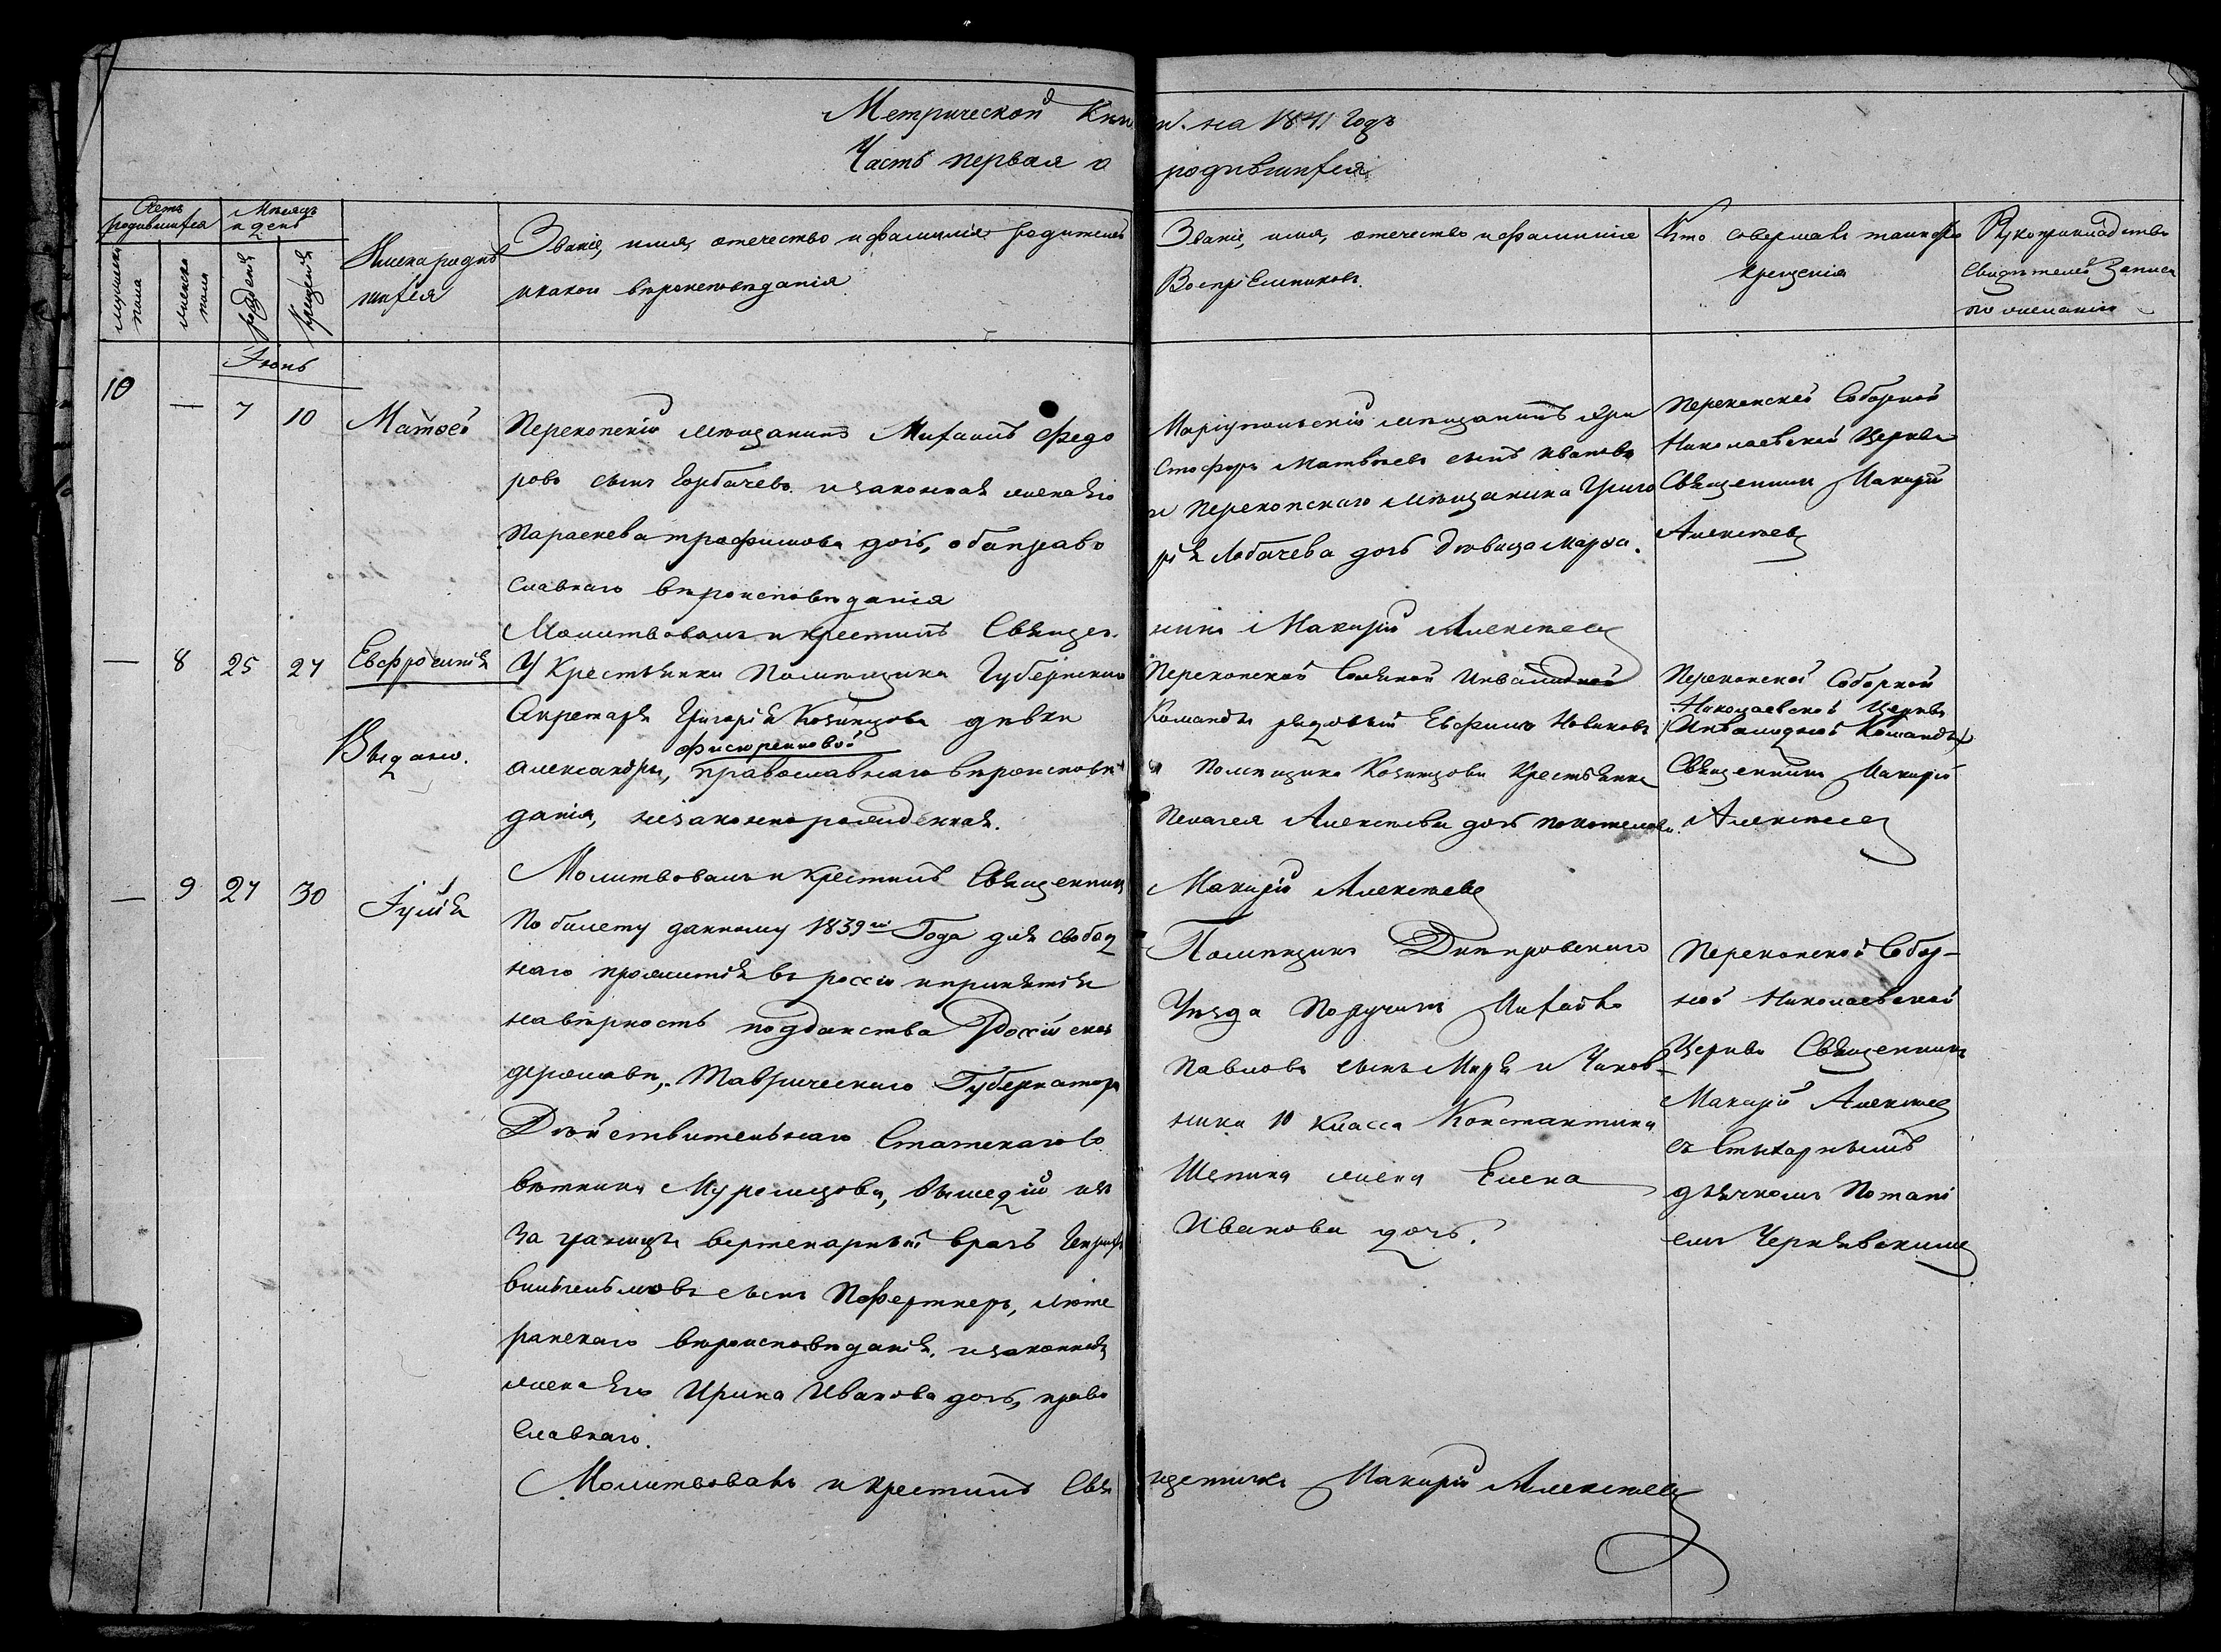 Метрической Книги на 1841 Годъ
Часть первая о родившихся
Счетъ родившихся
Мѣсяцъ и день
мужеска пола
женска пола
рожденія
крещенія
Имена родившихся
Званіе, имя, отечество и фамилія родителей
и какои вѣроисповѣданія
Званіе, имя, отечество и фамилія
Воспріемниковъ.
Кто совершалъ таинство
крещенія
Рукоприкладство
свидѣтелей записи
по желанію
Іюнь
10 — 7 10 Матѳей
Перекопскій мѣщанинъ Михаилъ Федо
ровъ сынъ Горбачевъ и законная жена его
Параскева трофимова дочь, оба право
славнаго вѣроисповѣданія
Маріупольскій мѣщанинъ Хри
стофоръ Матвѣевъ сынъ Ивановъ
и Перекопскаго мѣщанина Григо
рія Лобачева дочь дѣвица Марѳа.
Перекопской Соборной
Николаевской Церкви
Священникъ Макарій
Алексѣевъ
Молитвовалъ и крестилъ Священникъ Макарій Алексѣевъ
— 8 25 27 Евфросинія
Выдано.
У Крестьянки Помѣщика Губернскаго
Секретаря Григорія Казинцова дѣвки
фисюренковой
Александры, православнаго вѣроисповѣ
данія, незаконнорожденная.
Перекопской Соляной Инвалидной
Команды рядовый Евфимъ Новиковъ
и Помѣщика Казинцова Крестьянка
Пелагея Алексѣева дочь
Перекопской Соборной
Николаевской Церкви
(Инвалидной Команды)
Священникъ Макарій
Алексѣевъ
Молитвовалъ и крестилъ Священникъ Макарій Алексѣевъ
— 9 27 30 Іулія
По билету данному 1839го Года для свобод
наго прожитія въ россіи и принятія
на вѣрность подданства Россійской
державы, Таврическаго Губернатора
Дѣйствительнаго Статскаго Со
вѣтника Муромцова, вышедій изъ
За границы ветенарный врачъ
вильгельмовъ сынъ Пофертнеръ, люте
ранскаго вѣроисповѣданія, и законная
жена его Ирина Иванова дочь, право
славнаго.
Помѣщикъ Днѣпровскаго
Уѣзда Поручикъ Михайло
Павловъ сынъ Миря и Чинов-
ника 10 класса Константина
Щепина жена Елена
Иванова дочь.
Перекопской Собор-
ной Николаевской
Церкви Священникъ
Макарій Алексѣевъ
съ Стихарнымъ
дьячкомъ Потапі
емъ Чернявскимъ
Молитвовалъ и крестилъ Священникъ Макарій Алексѣевъ